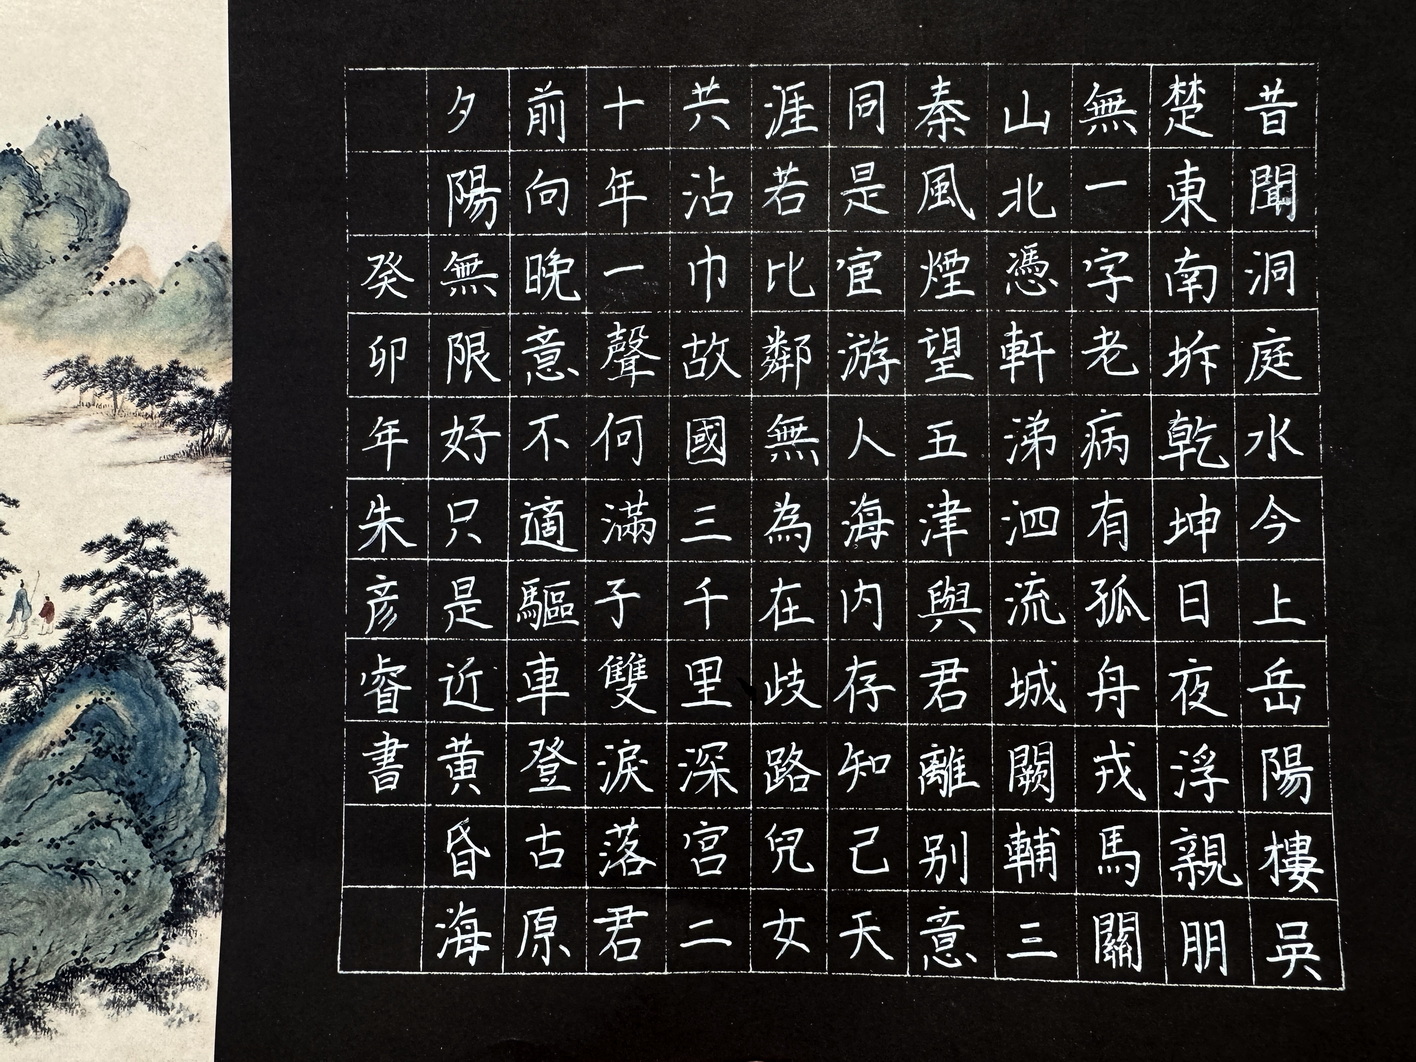 昔聞洞庭水今上岳陽樓吳
楚東南坼乾坤日夜浮親朋
無一字老病有孤舟戎馬關
山北憑軒涕泗流城闕輔三
秦風煙望五津與君離別意
同是宦游人海內存知己天
涯若比鄰無為在歧路兒女
共沾巾故國三千里深宮二
十年一聲何滿子雙淚落君
前向晚意不適驅車登古原
夕陽無限好只是近黃昏海
癸卯年朱彥睿書